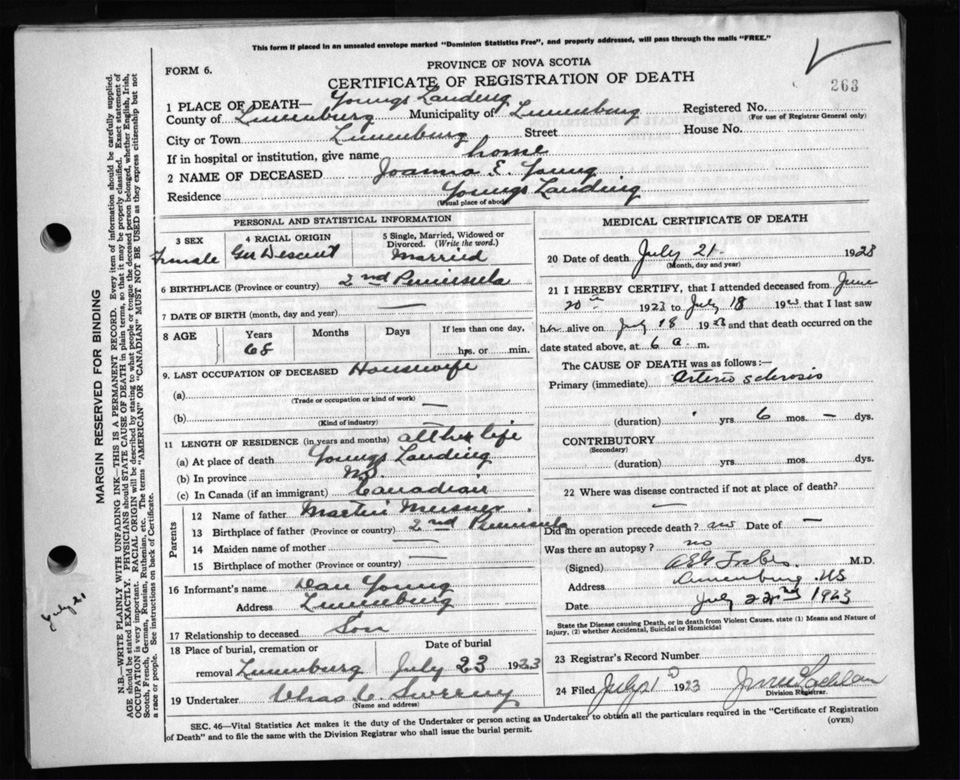 This form if placed in an unsealed envelope marked "Dominion Statistics Free", and properly addressed, will pass through the mails "FREE."
FORM 6.
PROVINCE OF NOVA SCOTIA
CERTIFICATE OF REGISTRATION OF DEATH
263
1 PLACE OF DEATH— Youngs Landing
County of Lunenburg Municipality of Lunenburg Registered No.
(For use of Registrar General only)
City or Town Lunenburg Street House No.
If in hospital or institution, give name home
2 NAME OF DECEASED Joanna E. Young
Residence Youngs Landing
(Usual place of abode)
PERSONAL AND STATISTICAL INFORMATION
3 SEX 4 RACIAL ORIGIN 5 Single, Married, Widowed or Divorced. (Write the word.)
Female Ger Descent Married
6 BIRTHPLACE (Province or country) 2nd Peninsula
7 DATE OF BIRTH (month, day and year) —
8 AGE Years Months Days If less than one day,
68 hrs. or min.
9. LAST OCCUPATION OF DECEASED Housewife
(a) —
(Trade or occupation or kind of work)
(b) —
(Kind of industry)
11 LENGTH OF RESIDENCE (in years and months) all her life
(a) At place of death Youngs Landing
(b) In province NS.
(c) In Canada (if an immigrant) Canadian
Parents
12 Name of father Martin Meisner
13 Birthplace of father (Province or country) 2nd Peninsula
14 Maiden name of mother —
15 Birthplace of mother (Province or country) —
16 Informant's name Dan Young
Address Lunenburg
17 Relationship to deceased Son
18 Place of burial, cremation or removal Lunenburg Date of burial July 23 1923
19 Undertaker Chas C. Sweeny
(Name and address)
MEDICAL CERTIFICATE OF DEATH
20 Date of death July 21 1923
(Month, day and year)
21 I HEREBY CERTIFY, that I attended deceased from June
20th 1923 to July 18 192 that I last saw
her alive on July 18 1923 and that death occurred on the
date stated above, at 6 a. m.
The CAUSE OF DEATH was as follows:—
Primary (immediate) Arterio sclerosis
(duration) yrs 6 mos. — dys.
CONTRIBUTORY
(Secondary)
(duration) yrs. mos. dys.
22 Where was disease contracted if not at place of death?
—
Did an operation precede death? no Date of —
Was there an autopsy? no
(Signed) M.D.
Address Lunenburg NS
Date July 22nd 1923
State the Disease causing Death, or in death from Violent Causes, state (1) Means and Nature of Injury, (2) whether Accidental, Suicidal or Homicidal
23 Registrar's Record Number
24 Filed July 1923
Division Registrar.
SEC. 46—Vital Statistics Act makes it the duty of the Undertaker or person acting as Undertaker to obtain all the particulars required in the "Certificate of Registration
of Death" and to file the same with the Division Registrar who shall issue the burial permit.
(OVER)
MARGIN RESERVED FOR BINDING
N.B.—WRITE PLAINLY WITH UNFADING INK—THIS IS A PERMANENT RECORD. Every item of information should be carefully supplied.
AGE should be stated EXACTLY. PHYSICIANS should STATE CAUSE OF DEATH in plain terms, so that it may be properly classified. Exact statement of
OCCUPATION is very important. RACIAL ORIGIN will be described by stating to what people or tongue the deceased person belonged, whether English, Irish,
Scotch, French, German, Russian, Ruthenian, etc. The terms "AMERICAN" OR "CANADIAN" MUST NOT BE USED as they express citizenship but not
a race or people. See instructions on back of Certificate.
July 21